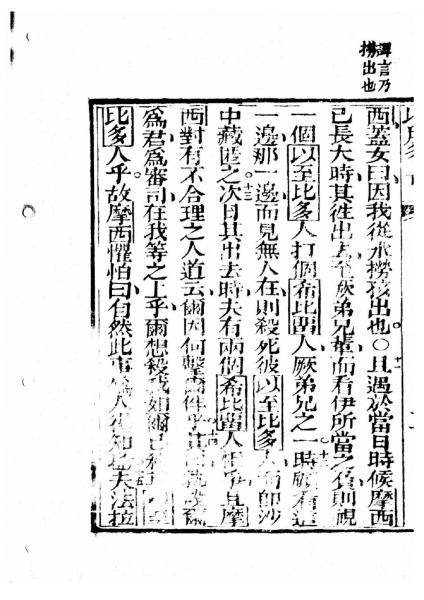 譯言乃
撈出也
西蓋女曰因我從水撈孩出也。○十一且遇於當日時候摩西
已長大時其徃出去至厥弟兄輩而看伊所當之負則視
一個以至比多人打個希比畱人厥弟兄之一十二時顧有這
一邊那一邊而見無人在則殺死彼以至比多人而卽沙
中藏匿之十三次日其出去時夫有兩個希比畱人爭且摩
西對有不合理之人道云爾因何擊爾伴乎十四孰設爾
爲君爲審司在我等之上乎爾想殺我如爾已殺至
比多人乎故摩西懼怕曰自然此事爲人得知也十五夫法拉